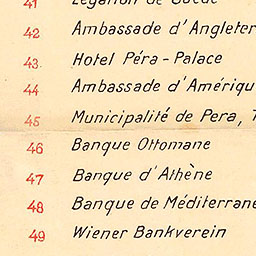 41 Légation de Suède
42 Ambassade d'Angleter
43 Hotel Péra-Palace
44 Ambassade d'Amériqu
45 Municipalité de Pera, T
46 Banque Ottomane
47 Banque d'Athène
48 Banque de Méditerrane
49 Wiener Bankverein